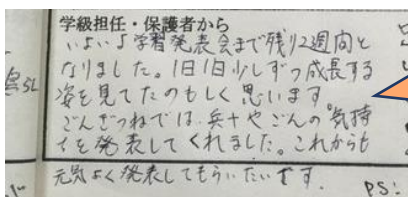 学級担任・保護者から
いよいよ学習発表会まで残り2週間と
なりました。1日1日少しずつ成長する
姿を見てたのもしく思います
ごんぎつねでは、兵十やごんの気持
ちを発表してくれました。これからも
元気よく発表してもらいたいです.
PS:
SL